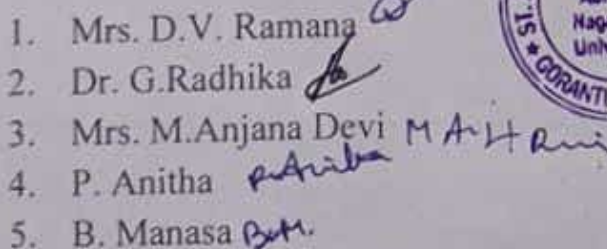 1. Mrs. D.V. Ramana
2. Dr. G.Radhika
3. Mrs. M.Anjana Devi
4. P. Anitha P.Anitha
5. B. Manasa B.M.
Nag
Uni
ST * GORANT